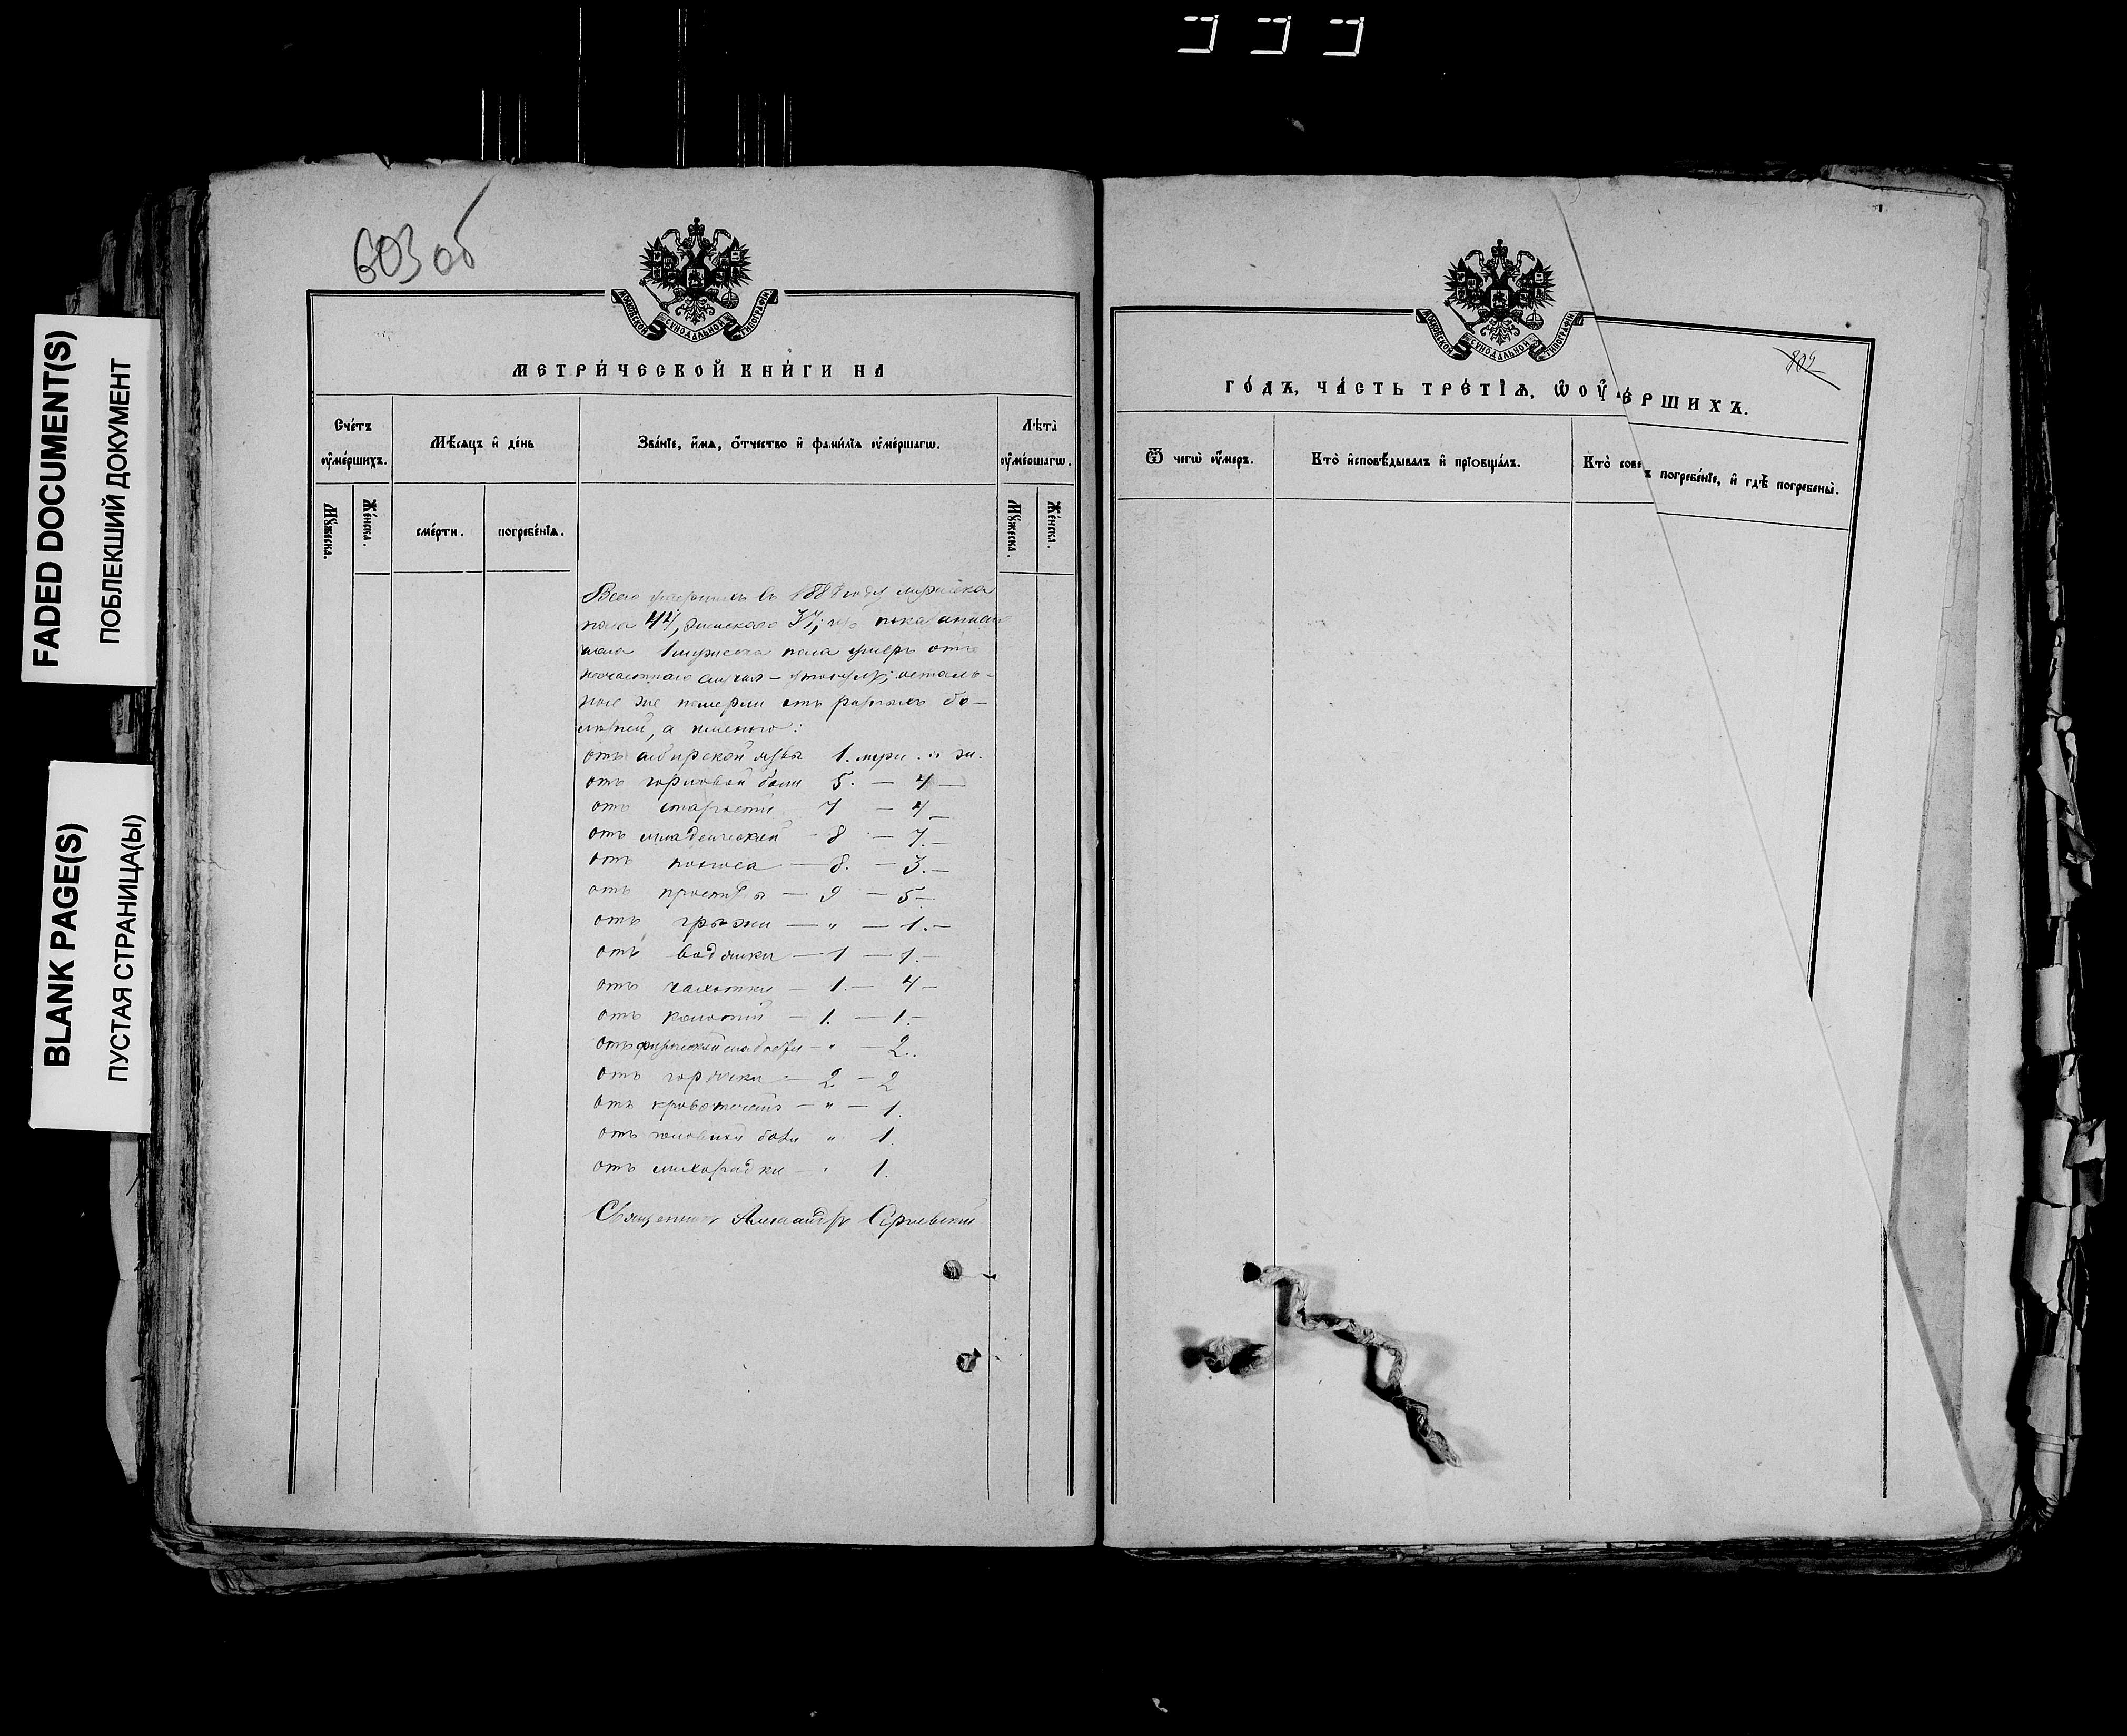 FADED DOCUMENT(S)
ПОБЛЕКШИЙ ДОКУМЕНТ
BLANK PAGE(S)
ПУСТАЯ СТРАНИЦА(Ы)
603 об
МОСКОВСКОЙ СѴНОДАЛЬНОЙ ТИПОГРАФІИ
МЕТРИ́ЧЕСКОЙ КНИ́ГИ НА
Сче́тъ оу҆ме́ршихъ.
Мѣ́сяцъ и҆ де́нь
Зва́нїе, и҆́мѧ, ѻ҆́тчество и҆ фами́лїѧ оу҆ме́ршагѡ.
Лѣ́та оу҆ме́ршагѡ.
Мꙋ́жеска.
Же́нска.
сме́рти.
погребе́нїѧ.
Мꙋ́жеска.
Же́нска.
Всего умершихъ въ 188 году мужеска
пола 44, женскаго 37; изъ
1 мужеска пола умеръ отъ
несчастнаго случая – осталь-
ные же померли отъ разныхъ бо-
лѣзней, а именно:
отъ сибирской язвы 1. муж. " ж.
отъ горловой боли 5. — 4 —
отъ старости 7 — 4 —
отъ младенческой 8 — 7. —
отъ поноса — 8. — 3. —
отъ простуды — 9 — 5 —
отъ грыжи — " — 1. —
отъ водянки — 1 — 1. —
отъ чахотки — 1. — 4 —
отъ колотій — 1. — 1. —
отъ физической слабости — " — 2.
отъ горячки — 2 — 2
отъ кровотеченія — " — 1.
отъ головной боли " 1.
отъ лихорадки — " 1.
Священникъ Александръ Сергіевскій
МОСКОВСКОЙ СѴНОДАЛЬНОЙ ТИПОГРАФІИ
ГО́ДЪ, ЧА́СТЬ ТРЕ́ТЇѦ, Ѡ ОУ҆ ЕРШИХЪ.
Ѿ чегѡ̀ оу҆́меръ.
Кто̀ и҆сповѣ́дывалъ и҆ прїобща́лъ.
Кто̀ сове ъ погребе́нїе, и҆ гдѣ̀ погребены̀.